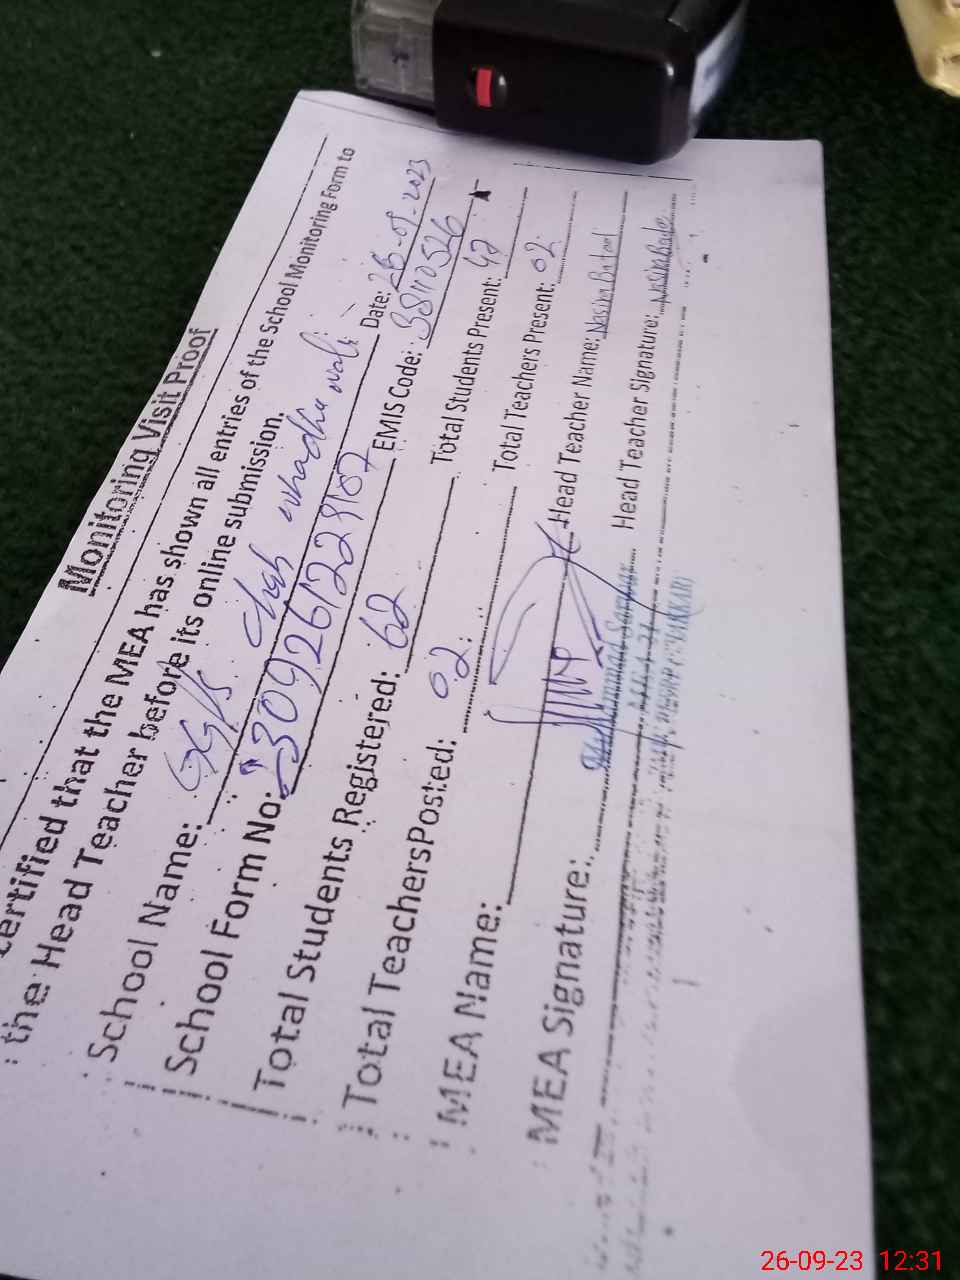 Monitoring Visit Proof
certified that the MEA has shown all entries of the School Monitoring Form to
the Head Teacher before its online submission.
School Name: GG/S Chah wadhu wali Date: 26-09-2023
School Form No: 230926122918 EMIS Code: 38110526
Total Students Registered: 62 Total Students Present: 42
Total TeachersPosted: 02 Total Teachers Present: 02
MEA Name: Head Teacher Name: Nasim Batool
MEA Signature: Muhammad Sarwar Head Teacher Signature: Nasim Batool
26-09-23 12:31